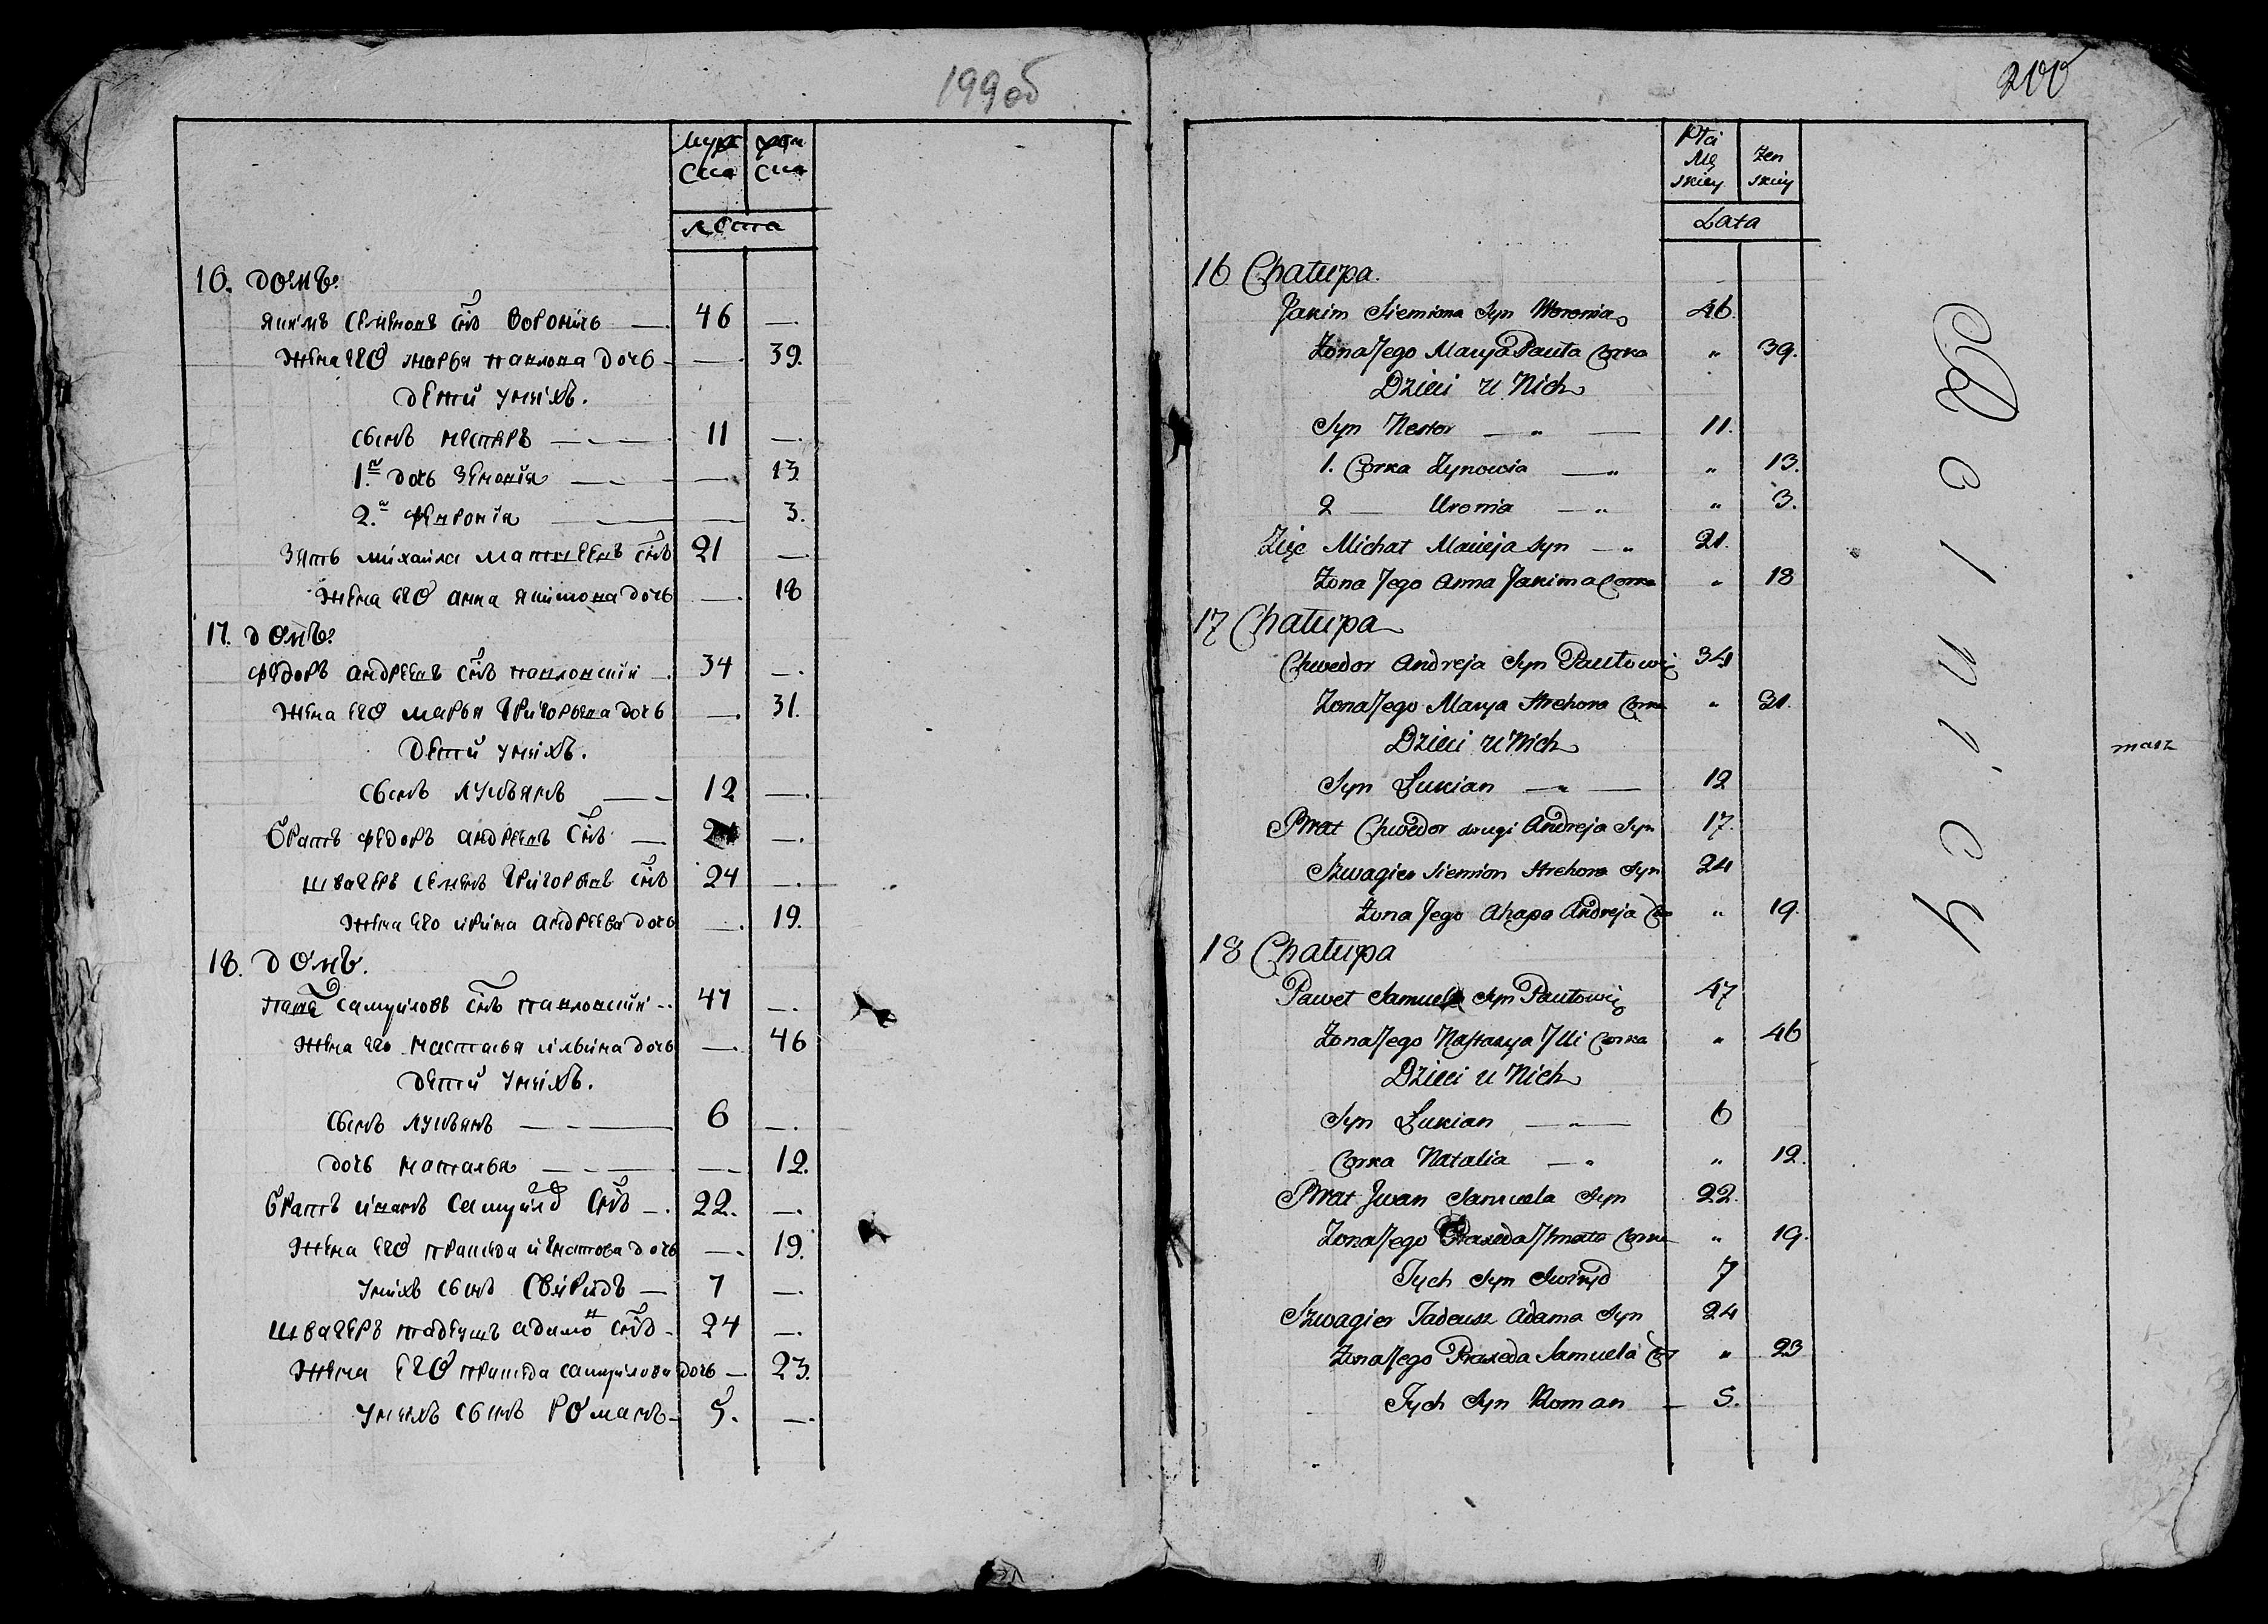 199 об
Муж Жен
Ска Ска
Лѣта
16. домъ.
Якимъ Семеновъ снъ вороничъ — 46 —
Жена его марья павлова дочь — — 39.
дети унихъ.
сынъ нестеръ — 11 —
1.я дочь Зеновія — — 13
2.я Февронія — — 3.
Зять михайла матвеевъ снъ 21 —
Жена его анна якимова дочь — 18
17. домъ.
Федоръ андреевъ снъ павловскій — 34 —
Жена его марья григорьева дочь — 31.
дети унихъ.
сынъ лукьянъ — 12 —
братъ федоръ андреевъ снъ — —
швагеръ семенъ григорьевъ снъ 24 —
Жена его ирина андреева дочь — 19.
18. домъ.
павелъ самуйловъ снъ павловскій 47 —
Жена его настасья ильина дочь — 46
дети унихъ.
сынъ лукьянъ — 6 —
дочь наталья — — 12.
братъ иванъ самуйло снъ — 22. —
Жена его праседа игнатова дочь — 19.
унихъ сынъ Свиридъ — 7 —
швагеръ тадеушъ адамов снъ 24 —
Жена его праседа самуйлова дочь — 23.
унихъ сынъ Романъ 5. —
200
Płci
Mę Żen
skiey skiey
Lata
16 Chałupa.
Jakim Siemiona Syn Woronicz 46.
Żona Jego Marya Pawła Corka " 39.
Dzieci u Nich
Syn Nestor — " — 11.
1. Corka Zynowia — " " 13.
2 — Uronia — " " 3.
Zięć Michał Macieja Syn — " 21.
Żona Jego Anna Jakima Corka " 18
17 Chałupa
Chwedor Andreja Syn Pawłowicz 34
Żona Jego Marya Hrehora Corka " 31.
Dzieci u Nich
Syn Łukian — " — 12
Brat Chwedor drugi Andreja Syn 17.
Szwagier Siemion Hrehora Syn 24
Żona Jego Ahapa Andreja Co " 19.
18 Chałupa
Paweł Samuela Syn Pawłowicz 47
Żona Jego Nastasya Illi Corka " 46
Dzieci u Nich
Syn Łukian — " — 6
Corka Natalia — " " 12.
Brat Jwan Samuela Syn 22.
Żona Jego Praxeda Ihnata Corka " 19.
Tych Syn Swiryd 7
Szwagier Tadeusz Adama Syn 24
Żona Jego Praxeda Samuela Cor " 23
Tych Syn Roman — 5.
Rolnicy
masz